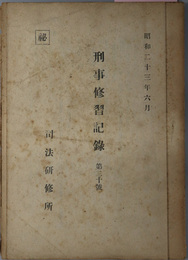 昭和二十三年六月
刑事修習記録 第三十號
司法研修所
秘